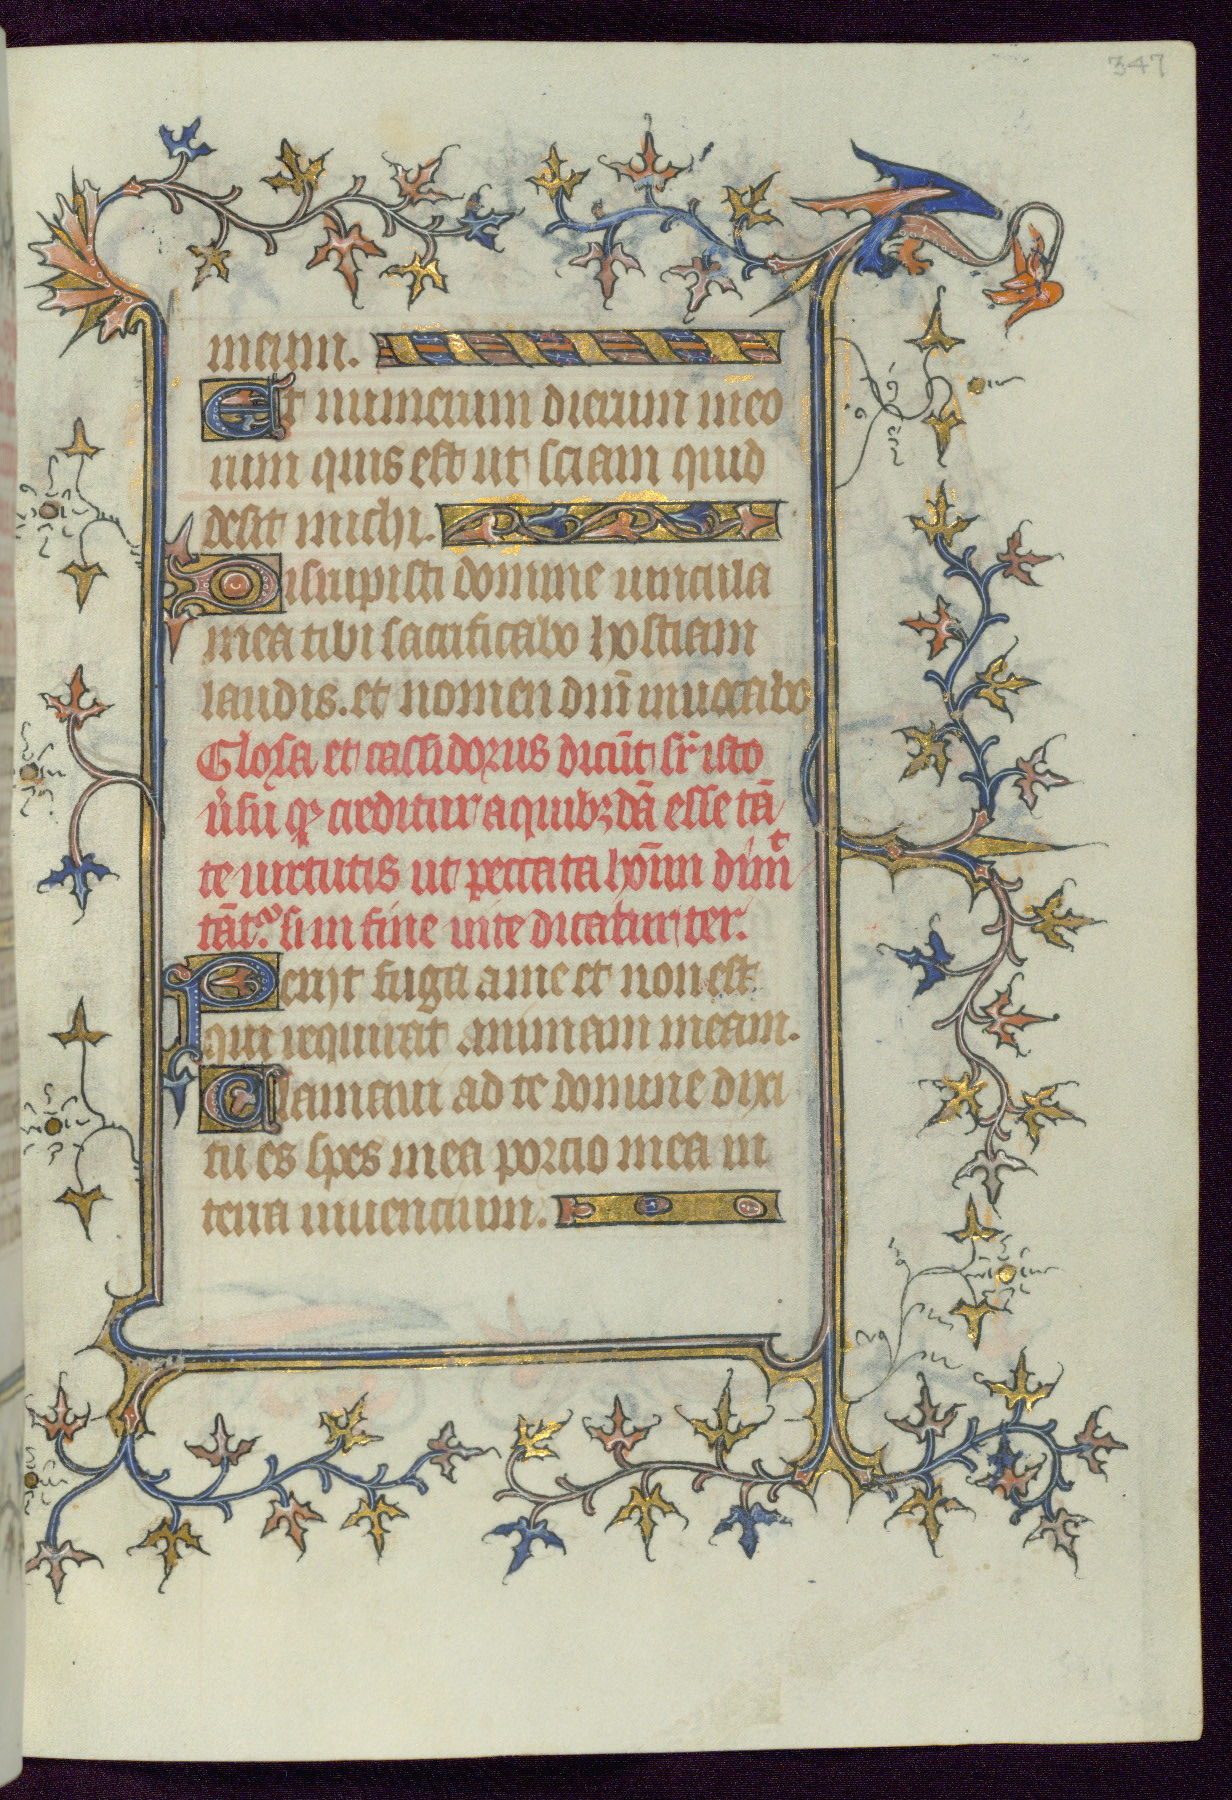 347
meum.
Et numerum dierum meo
rum quis est ut sciam quid
desit michi.
Disrupisti domine vincula
mea tibi sacrificabo hostiam
laudis. et nomen dnī invocabo
Glosa et cassidorus dicūt sr̄ isto
v̓su qȝ creditur a quibȝdā esse tā
te virtutis ut peccata hōīm dim
tātᵒ. si in fine vite dicatur ter.
Periit fuga a me et non est
qui requirat animam meam.
Clamavi ad te domine dixi
tu es spes mea porcio mea in
terra viventium.